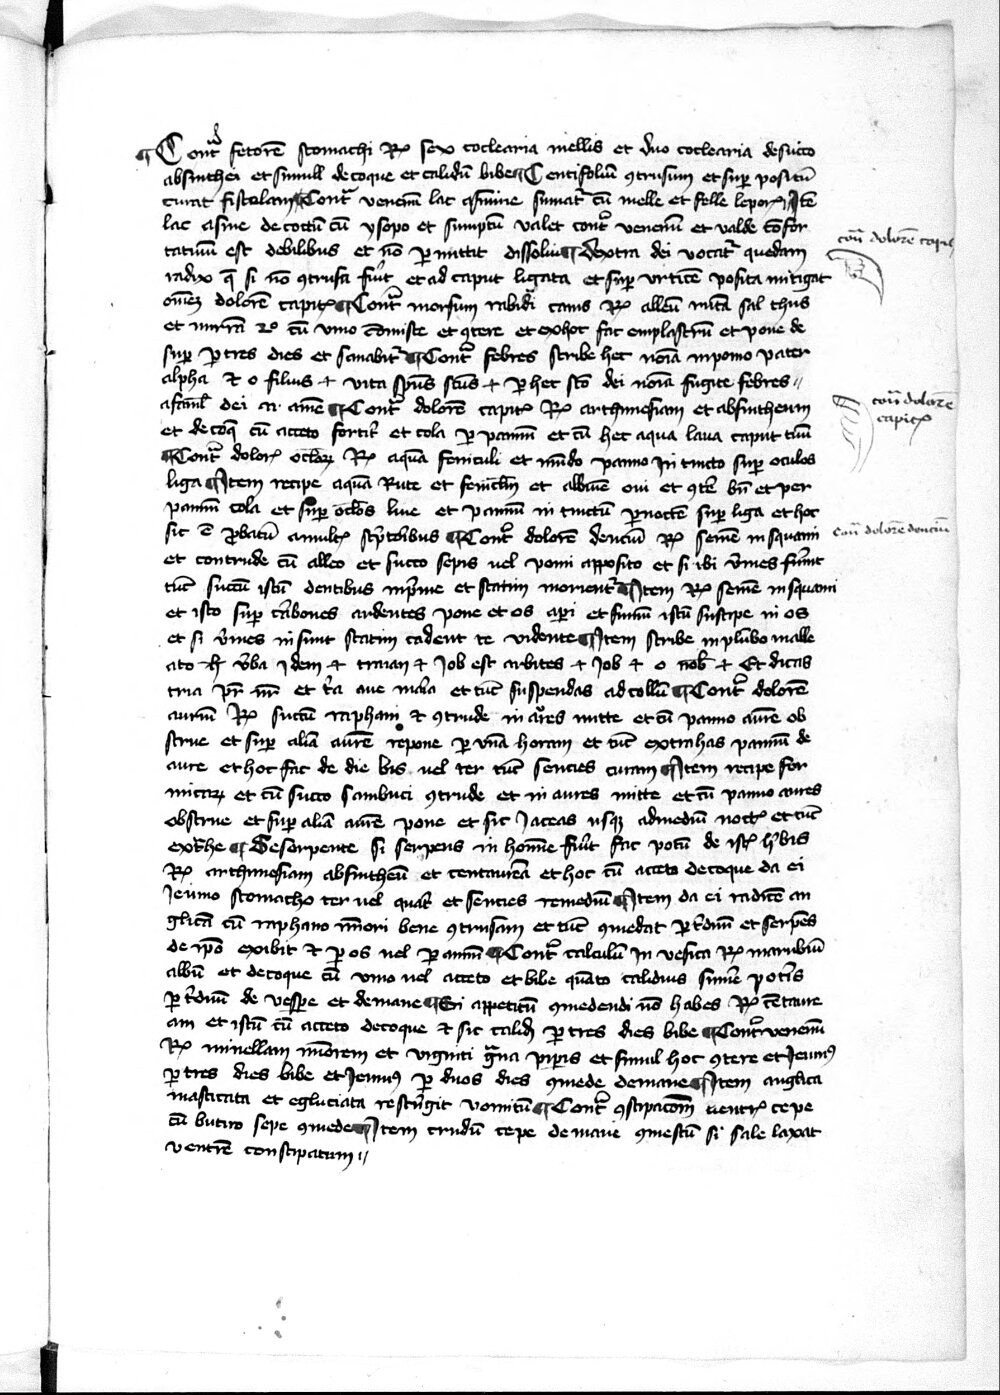 ¶ Contᵃ fetorē stomachi Rx sex coclearia mellis et duo coclearia de succo
absinthei et simull decoque et calidū bibe ¶ Centifoliū ꝯtrusum et suꝑ positū
curat fistolam ¶ Contᵃ venenū lac asinine sumatᵣ cū melle et felle leporꝭ ¶ Itē
lac asine decoctū cū ysopo et sumptū valet contᵃ venenū et valde cōfor
tatiuū est debilibus et nō ꝑmittit dissolui ¶ Dextra dei vocatᵣ quedam
radix q̄ si nō ꝯtrusa fuīt et ad caput ligata et suꝑ vrticē posita mitigat
om̄eꝫ dolorē capitꝭ ¶ Contᵃ morsum rabidi canis Rx alleū rutā sal thus
et mirrā cū vino et ꝯtere et ex hoc fac emplastrū et pone de
suꝑ ꝑ tres dies et sanabitᵣ ¶ Contᵃ febres scribe hec noīa in pomo pater
alpha et o filius + vita sp̄us sc̄us + ꝑ hec scā dei noīa fugite febres //
a famƚ dei amē ¶ Contᵃ dolorē capitꝭ Rx arthimesiam et absintheum
et decoq̄ cū acceto fortiṫ et cola ꝑ pannū et cū hec aqua laua caput tuū
¶ Contᵃ dolorꝭ oclorꝝ Rx aquā feniculi et mūdo panno intincto suꝑ oculos
liga ¶ Item recipe aquā Rute et fenicƚi et albumē oui et ꝯtē bn̄ et per
pannū cola et suꝑ oclos line et pannū intinctū ꝑ noctē suꝑ liga et hoc
sic ē ꝓbatū a multꝭ sp̄toribus ¶ Contᵃ dolorē denciū Rx semē iusquiami
et contrude cū alleo et succo sepis vel pomi apposito et si ibi v̄mes fuīnt
tūc succū istū dentibus inp̄me et statim morientᵣ ¶ Item Rx semē iusquiami
et isto suꝑ cᵃbones ardentes pone et os aꝑi et fumū istū suscipe in os
et si v̄mes insunt statim cadent te vidente ¶ Item scribe in plūbo malle
ato h̄ v̄ba idem + traian + Job est arbites + Job + o nob̄ + Et dicas
tria pr̄ nr̄ et tᵃ aue maīa et tūc suspendas ad collū ¶ Contᵃ dolorē
auriū Rx succū raphani et ꝯtrude in aures mitte et cū panno aurē ob
strue et suꝑ aliā aurē repone ꝑ vnā horam et tūc extrahas pannū de
aure et hoc fac de die bis vel ter tūc sencies curam ¶ Item recipe for
micaꝝ et cū succo sambuci ꝯtrude et in aures mitte et cū panno aures
obstrue et suꝑ aliā aurē pone et sic iaceas usqꝫ ad mediū noctꝭ et tūc
extᵃhe ¶ De serpente si serpens in hoīne fuīt fac potū de istꝭ h̄bis
Rx arthimesiam absintheū et centaureā et hoc cū acceto decoque da ei
Jeiuno stomacho ter vel quaṫ et sencies remediū ¶ Item da ei radicē an
glicā cū raphano mīori bene ꝯtrusam et tūc ꝯmedat ꝑ tᵃduū et serpēs
de ip̄o exibit et ꝑ os vel ꝑ annū ¶ Contᵃ calculū in vesica Rx marubiū
albū et decoque cū vino vel acceto et bibe quāto calidius sumē potis
ꝑ tᵃduū de vesꝑe et de mane ¶ Si appetitū ꝯmedendi nō habes Rx cētaure
am et istū cū acceto decoque et sic calid ꝑ tres dies bibe ¶ Contᵃ venenū
Rx minellam mīorem et viginti gᵃna piꝑis et simul hoc ꝯtere et Jeiunꝰ
ꝑ tres dies bibe et Jeiunꝰ ꝑ duos dies ꝯmede de mane ¶ Item anglica
masticata et egluciata restringit vomitū ¶ Contᵃ ꝯstipacōem ventrꝭ cepe
cū butiro sepe ꝯmede ¶ Item crudū cepe de mane ꝯmestū si sale laxat
ventrē constipatum //
con̄ dolorē capitꝭ
con̄ dolorē
capitꝭ
con̄ dolorē denciū